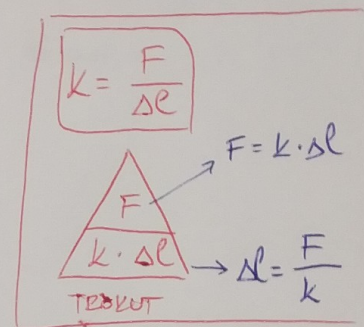 k = F/Δl
F = k · Δl
F
k · Δl
Δl = F/k
TROKUT